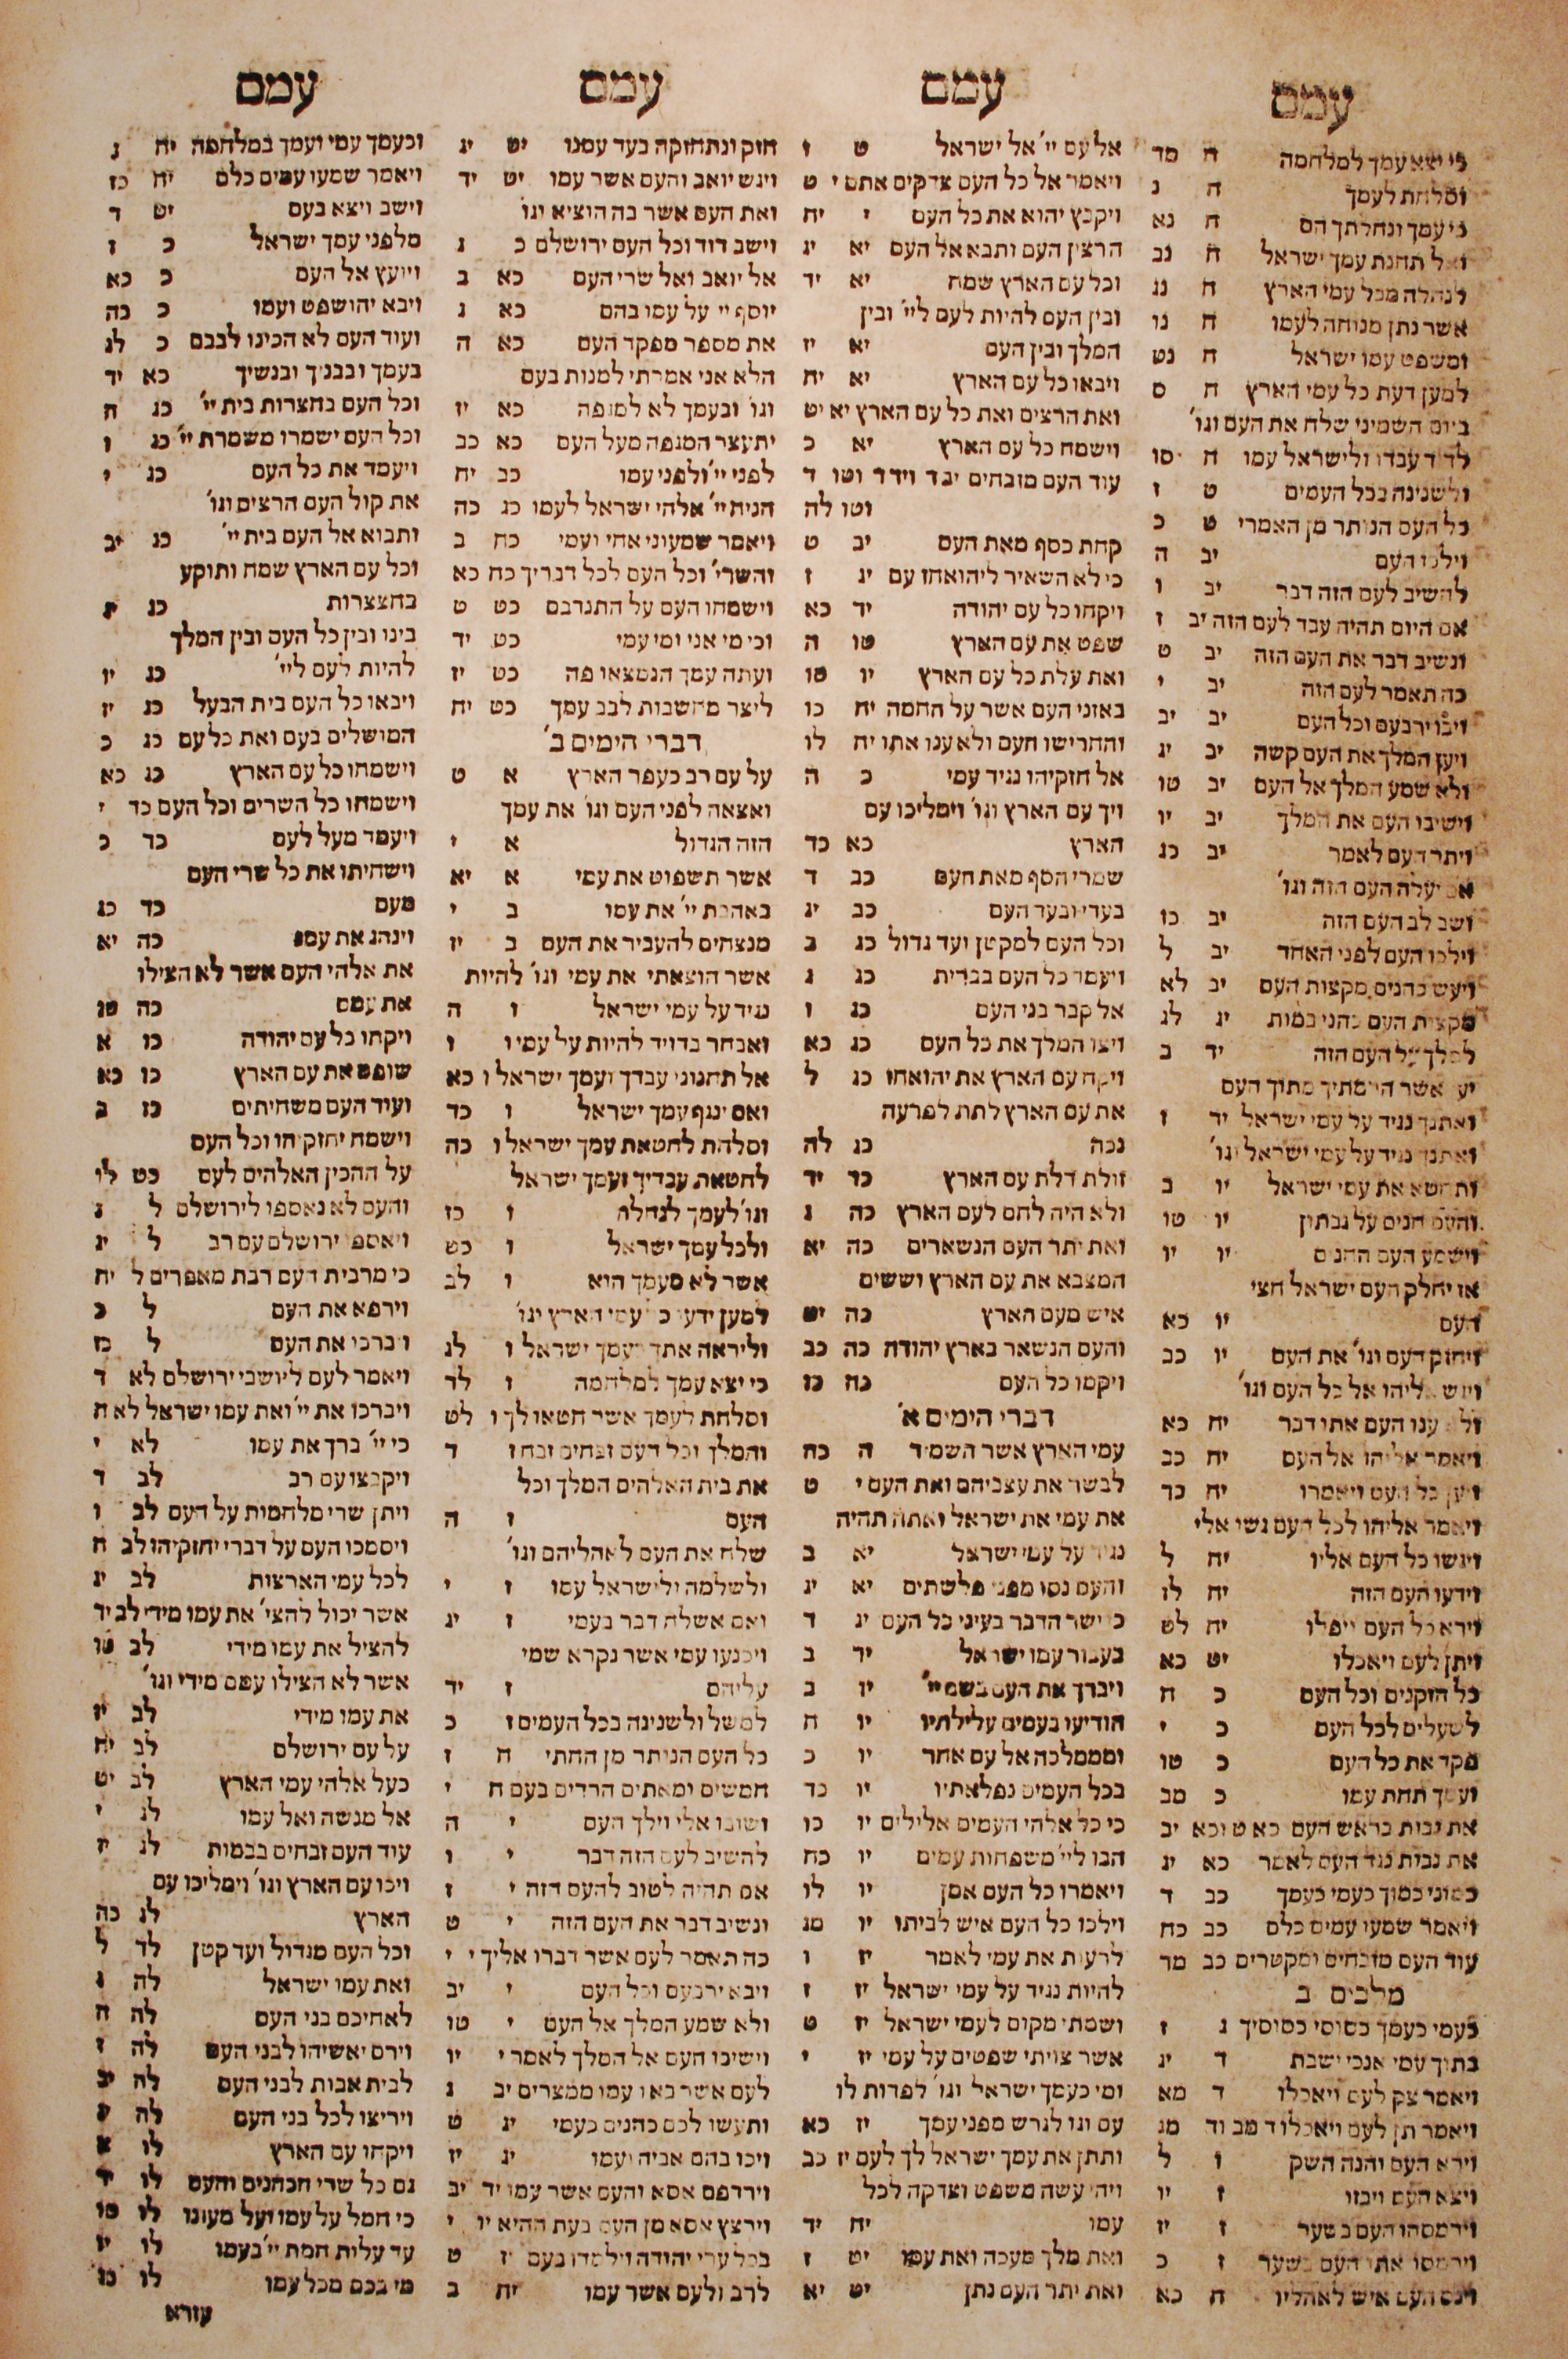 עמם
כי יצא עמך למלחמה ח מד
וסלחת לעמך ח נ
כי עמך ונחלתך הם ח נא
ואל תחנת עמך ישראל ח נב
לנחלה מכל עמי הארץ ח נג
אשר נתן מנוחה לעמו ח נו
ומשפט עמו ישראל ח נט
למען דעת כל עמי הארץ ח ס
ביום השמיני שלח את העם וגו'
לדוד עבדו ולישראל עמו ח סו
ולשנינה בכל העמים ט ז
כל העם הנותר מן האמרי ט כ
וילכו העם יב ה
להשיב לעם הזה דבר יב ו
אם היום תהיה עבד לעם הזה יב ז
ונשיב דבר את העם הזה יב ט
כה תאמר לעם הזה יב י
ויבו ירבעם וכל העם יב יב
ויען המלך את העם קשה יב יג
ולא שמע המלך אל העם יב טו
וישיבו העם את המלך יב יו
ויתר העם לאמר יב כג
אם יעלה העם הזה וגו'
ושב לב העם הזה יב כז
וילכו העם לפני האחד יב ל
ויעש כהנים מקצות העם יב לא
מקצות העם כהני במות יג לג
למלך על העם הזה יד ב
יען אשר הרימתיך מתוך העם
ואתנך נגיד על עמי ישראל יד ז
ואתנך נגיד על עמי ישראל וגו'
ותחטא את עמי ישראל יו ב
והעם חנים על גבתון יו טו
וישמע העם החנים יו יו
אז יחלק העם ישראל חצי
העם יו כא
ויחזק העם וגו' את העם יו כב
ויגש אליהו אל כל העם וגו'
ולא ענו העם אתו דבר יח כא
ויאמר אליהו אל העם יח כב
ויען כל העם ויאמרו יח כד
ויאמר אליהו לכל העם גשו אלי
ויגשו כל העם אליו יח ל
וידעו העם הזה יח לז
וירא כל העם ויפלו יח לט
ויתן לעם ויאכלו יט כא
כל הזקנים וכל העם כ ח
לשעלים לכל העם כ י
פקד את כל העם כ טו
ועמך תחת עמו כ מב
את נבות בראש העם כא ט וכא יב
את נבות נגד העם לאמר כא יג
כמוני כמוך כעמי כעמך כב ד
ויאמר שמעו עמים כלם כב כח
עוד העם מזבחים ומקטרים כב מד
מלכים ב
כעמי כעמך כסוסי כסוסיך ג ז
בתוך עמי אנכי ישבת ד יג
ויאמר צק לעם ויאכלו ד מא
ויאמר תן לעם ויאכלו ד מב וד מג
וירא העם והנה השק ו ל
ויצא העם ויבזו ז יו
וירמסהו העם בשער ז יז
וירמסו אתו העם בשער ז כ
וינס העם איש לאהליו ח כא
עמם
אל עם יי' אל ישראל ט ו
ויאמר אל כל העם צדקים אתם י ט
ויקבץ יהוא את כל העם י יח
הרצין העם ותבא אל העם יא יג
וכל עם הארץ שמח יא יד
ובין העם להיות לעם ליי' ובין
המלך ובין העם יא יז
ויבאו כל עם הארץ יא יח
ואת הרצים ואת כל עם הארץ יא יט
וישמח כל עם הארץ יא כ
עוד העם מזבחים יב ד ויד ד וטו ד
וטו לה
קחת כסף מאת העם יב ט
כי לא השאיר ליהואחז עם יג ז
ויקחו כל עם יהודה יד כא
שפט את עם הארץ טו ה
ואת עלת כל עם הארץ יו טו
באזני העם אשר על החמה יח כו
והחרישו העם ולא ענו אתו יח לו
אל חזקיהו נגיד עמי כ ה
ויך עם הארץ וגו' וימליכו עם
הארץ כא כד
שמרי הסף מאת העם כב ד
בעדי ובעד העם כב יג
וכל העם למקטן ועד גדול כג ב
ויעמד כל העם בברית כג ג
אל קבר בני העם כג ו
ויצו המלך את כל העם כג כא
ויקח עם הארץ את יהואחז כג ל
את עם הארץ לתת לפרעה
נכה כג לה
זולת דלת עם הארץ כד יד
ולא היה לחם לעם הארץ כה ג
ואת יתר העם הנשארים כה יא
המצבא את עם הארץ וששים
איש מעם הארץ כה יט
והעם הנשאר בארץ יהודה כה כב
ויקמו כל העם כה כו
דברי הימים א'
עמי הארץ אשר השמיד ה כה
לבשר את עצביהם ואת העם י ט
את עמי את ישראל ואתה תהיה
נגיד על עמי ישראל יא ב
והעם נסו מפני פלשתים יא יג
כי ישר הדבר בעיני כל העם יג ד
בעבור עמו ישראל יד ב
ויברך את העם בשם יי' יו ב
הודיעו בעמים עלילתיו יו ח
וממלכה אל עם אחר יו כ
בכל העמים נפלאתיו יו כד
כי כל אלהי העמים אלילים יו כו
הבו ליי' משפחות עמים יו כח
ויאמרו כל העם אמן יו לו
וילכו כל העם איש לביתו יו מג
לרעות את עמי לאמר יז ו
להיות נגיד על עמי ישראל יז ז
ושמתי מקום לעמי ישראל יז ט
אשר צויתי שפטים על עמי יז י
ומי כעמך ישראל וגו' לפדות לו
עם וגו לגרש מפני עמך יז כא
ותתן את עמך ישראל לך לעם יז כב
ויהי עשה משפט וצדקה לכל
עמו יח יד
ואת מלך מעכה ואת עמו יט ז
ואת יתר העם נתן יט יא
עמם
חזק ונתחזקה בעד עמנו יט יג
ויגש יואב והעם אשר עמו יט יד
ואת העם אשר בה הוציא וגו'
וישב דוד וכל העם ירושלם כ ג
אל יואב ואל שרי העם כא ב
יוסף יי' על עמו בהם כא ג
את מספר מפקד העם כא ה
הלא אני אמרתי למנות בעם
וגו' ובעמך לא למגפה כא יז
יתעצר המגפה מעל העם כא כב
לפני יי' ולפני עמו כב יח
הניח יי' אלהי ישראל לעמו כג כה
ויאמר שמעוני אחי ועמי כח ב
והשרי' וכל העם לכל דבריך כח כא
וישמחו העם על התנדבם כט ט
וכי מי אני ומי עמי כט יד
ועתה עמך הנמצאו פה כט יז
ליצר מחשבות לבב עמך כט יח
דברי הימים ב'
על עם רב כעפר הארץ א ט
ואצאה לפני העם וגו' את עמך
הזה הגדול א י
אשר תשפוט את עמי א יא
באהבת יי' את עמו ב י
מנצחים להעביר את העם ב יז
אשר הוצאתי את עמי וגו' להיות
נגיד על עמי ישראל ו ה
ואבחר בדויד להיות על עמי ו ו
אל תחנוני עבדך ועמך ישראל ו כא
ואם ינגף עמך ישראל ו כד
וסלחת לחטאת עמך ישראל ו כה
לחטאת עבדיך ועמך ישראל
וגו' לעמך לנחלה ו כז
ולכל עמך ישראל ו כט
אשר לא מעמך הוא ו לב
למען ידעו כל עמי הארץ וגו'
וליראה אתך כעמך ישראל ו לג
כי יצא עמך למלחמה ו לד
וסלחת לעמך אשר חטאו לך ו לט
והמלך וכל העם זבחים זבח ז ד
את בית האלהים המלך וכל
העם ז ה
שלח את העם לאהליהם וגו'
ולשלמה ולישראל עמו ז י
ואם אשלח דבר בעמי ז יג
ויכנעו עמי אשר נקרא שמי
עליהם ז יד
למשל ולשנינה בכל העמים ז כ
כל העם הנותר מן החתי ח ז
חמשים ומאתים הרדים בעם ח י
ושובו אלי וילך העם י ה
להשיב לעם הזה דבר י ו
אם תהיה לטוב להעם הזה י ז
ונשיב דבר את העם הזה י ט
כה תאמר לעם אשר דברו אליך י י
ויבא ירבעם וכל העם י יב
ולא שמע המלך אל העם י טו
וישיבו העם אל המלך לאמר י יו
לעם אשר באו עמו ממצרים יב ג
ותעשו לכם כהנים כעמי יג ט
ויכו בהם אביה ועמו יג יז
וירדפם אסא והעם אשר עמו יד יב
וירצץ אסא מן העם בעת ההיא יו י
בכל ערי יהודה וילמדו בעם יז ט
לרב ולעם אשר עמו יח ב
עמם
וכעמך עמי ועמך במלחמה יח ג
ויאמר שמעו עמים כלם יח כז
וישב ויצא בעם יט ד
מלפני עמך ישראל כ ז
ויועץ אל העם כ כא
ויבא יהושפט ועמו כ כה
ועוד העם לא הכינו לבבם כ לג
בעמך ובבניך ובנשיך כא יד
וכל העם בחצרות בית יי' כג ה
וכל העם ישמרו משמרת יי' כג ו
ויעמד את כל העם כג י
את קול העם הרצים וגו'
ותבוא אל העם בית יי' כג יב
וכל עם הארץ שמח ותוקע
בחצצרות כג יג
בינו ובין כל העם ובין המלך
להיות לעם ליי' כג יו
ויבאו כל העם בית הבעל כג יז
המושלים בעם ואת כל עם כג כ
וישמחו כל עם הארץ כג כא
וישמחו כל השרים וכל העם כד י
ויעמד מעל לעם כד כ
וישחיתו את כל שרי העם
מעם כד כג
וינהג את עמו כה יא
את אלהי העם אשר לא הצילו
את עמם כה טו
ויקחו כל עם יהודה כו א
שופט את עם הארץ כו כא
ועוד העם משחיתים כז ב
וישמח יחזקיהו וכל העם
על ההכין האלהים לעם כט לו
והעם לא נאספו לירושלם ל ג
ויאספו ירושלם עם רב ל יג
כי מרבית העם רבת מאפרים ל יח
וירפא את העם ל כ
ויברכו את העם ל כז
ויאמר לעם ליושבי ירושלם לא ד
ויברכו את יי' ואת עמו ישראל לא ח
כי יי' ברך את עמו לא י
ויקבצו עם רב לב ד
ויתן שרי מלחמות על העם לב ו
ויסמכו העם על דברי יחזקיהו לב ח
לכל עמי הארצות לב יג
אשר יכול להצי' את עמו מידי לב יד
להציל את עמו מידי לב טו
אשר לא הצילו עמם מידי וגו'
את עמו מידי לב יז
על עם ירושלם לב יח
כעל אלהי עמי הארץ לב יט
אל מנשה ואל עמו לג י
עוד העם זבחים בבמות לג יז
ויכו עם הארץ וגו' וימליכו עם
הארץ לג כה
וכל העם מגדול ועד קטן לד ל
ואת עמו ישראל לה ג
לאחיכם בני העם לה ה
וירם יאשיהו לבני העם לה ז
לבית אבות לבני העם לה יב
ויריצו לכל בני העם לה יג
ויקחו עם הארץ לו א
גם כל שרי הכהנים והעם לו יד
כי חמל על עמו ועל מעונו לו טו
עד עלית חמת יי' בעמו לו יו
מי בכם מכל עמו לו כג
עזרא